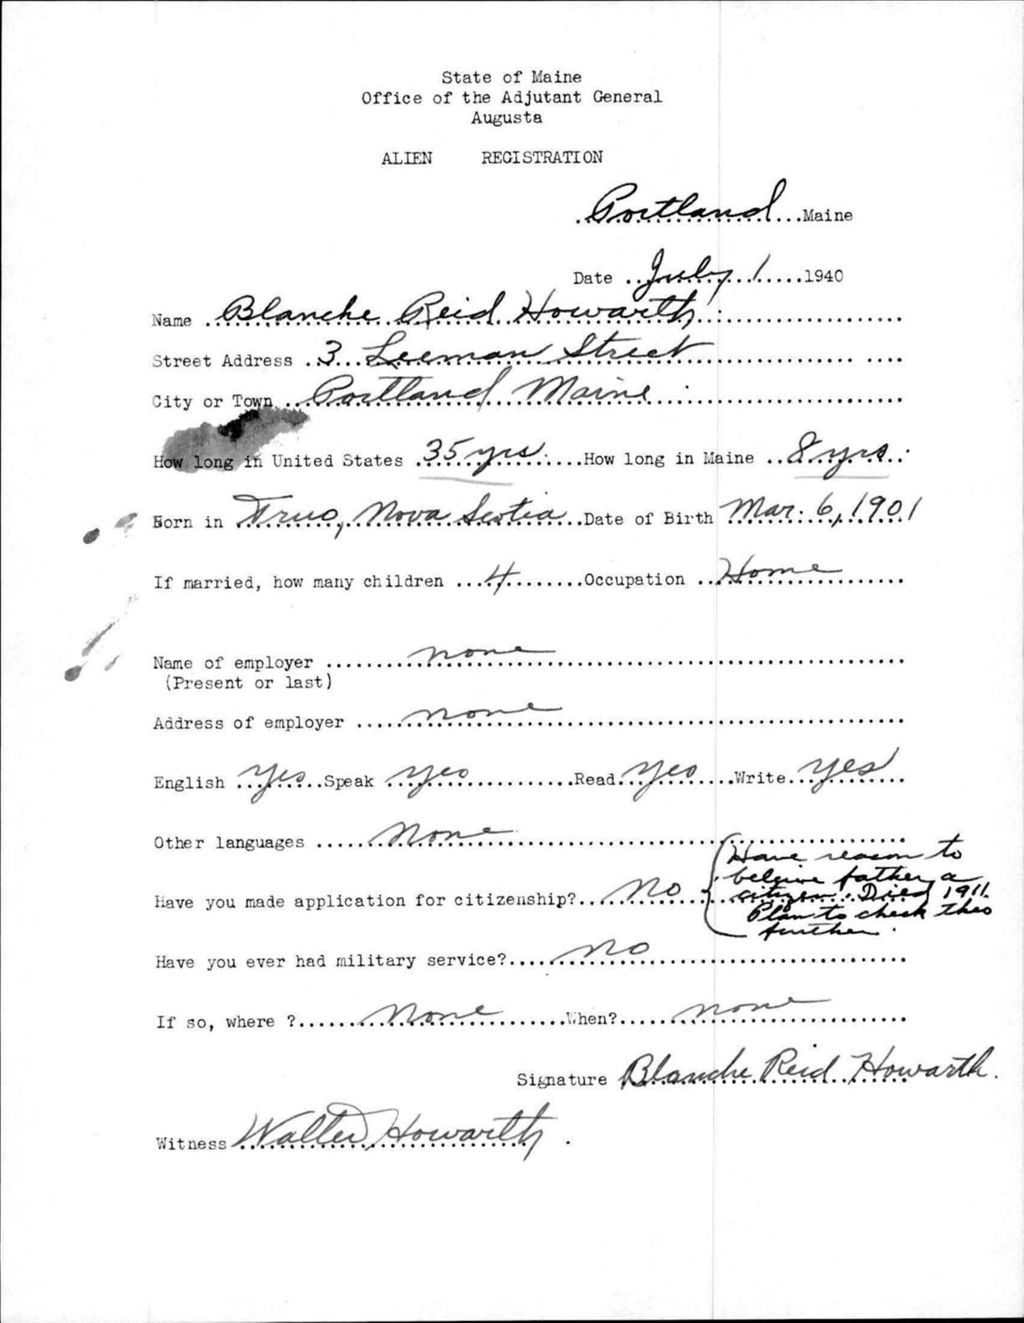 State of Maine
Office of the Adjutant General
Augusta
ALIEN REGISTRATION
Portland Maine
Date July 1 1940
Name Blanche Reid Howarth
Street Address 3 Leeman Street
City or Town Portland Maine
How long in United States 35 yrs How long in Maine 8 yrs.
Born in Truo, Nova Scotia Date of Birth Mar. 6, 1901
If married, how many children 4 Occupation Home
Name of employer none
(Present or last)
Address of employer none
English Yes Speak yes Read yes Write yes
Other languages None
Have reason to
beleive father a
Have you made application for citizenship? No citizen. Died 1911.
Plan to check this
further.
Have you ever had military service? no
If so, where ? None When? none
Signature Blanche Reid Howarth.
Witness Walter Howarth.